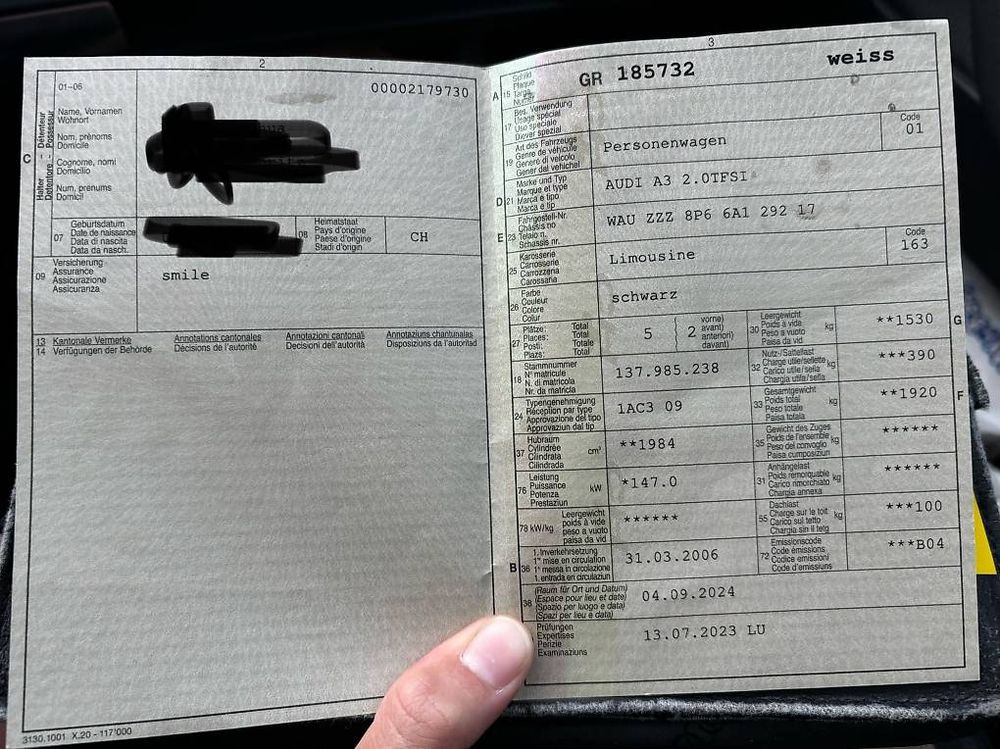 2
01-06
00002179730
C
Halter - Détenteur
Detentore - Possessur
Name, Vornamen
Wohnort
Nom, prénoms
Domicile
Cognome, nomi
Domicilio
Num, prenums
Domicil
07
Geburtsdatum
Date de naissance
Data di nascita
Data da nasch.
08
Heimatstaat
Pays d'origine
Paese d'origine
Stadi d'origin
CH
09
Versicherung
Assurance
Assicurazione
Assicuranza
smile
13 Kantonale Vermerke
14 Verfügungen der Behörde
Annotations cantonales
Décisions de l'autorité
Annotazioni cantonali
Decisioni dell'autorità
Annotaziuns chantunalas
Disposiziuns da l'autoritad
3130.1001 X.20 - 117'000
3
A
15
Schild
Plaque
Targa
Numer
GR 185732
weiss
17
Bes. Verwendung
Usage spécial
Uso speciale
Diever spezial
19
Art des Fahrzeugs
Genre de véhicule
Genere di veicolo
Gener dal vehichel
Personenwagen
Code
01
D
21
Marke und Typ
Marque et type
Marca e tipo
Marca e tip
AUDI A3 2.0TFSI
E
23
Fahrgestell-Nr.
Châssis no
Telaio n.
Schassis nr.
WAU ZZZ 8P6 6A1 292 17
25
Karosserie
Carrosserie
Carrozzeria
Carossaria
Limousine
Code
163
26
Farbe
Couleur
Colore
Colur
schwarz
27
Plätze: Total
Places: Total
Posti: Totale
Plazs: Total
5
2
vorne)
avant)
anteriori)
davant)
30
Leergewicht
Poids à vide
Peso a vuoto
Paisa da vid
kg
**1530
G
18
Stammnummer
N° matricule
N. di matricola
Nr. da matricla
137.985.238
32
Nutz-/Sattellast
Charge utile/sellette
Carico utile/sella
Chargia utila/sella
kg
***390
24
Typengenehmigung
Réception par type
Approvazione del tipo
Approvaziun dal tip
1AC3 09
33
Gesamtgewicht
Poids total
Peso totale
Paisa totala
kg
**1920
F
37
Hubraum
Cylindrée
Cilindrata
Cilindrada
cm³
**1984
35
Gewicht des Zuges
Poids de l'ensemble
Peso del convoglio
Paisa cumposiziun
kg
******
76
Leistung
Puissance
Potenza
Prestaziun
kW
*147.0
31
Anhängelast
Poids remorquable
Carico rimorchiato
Chargia annexa
kg
******
78 kW/kg
Leergewicht
poids à vide
peso a vuoto
paisa da vid
******
55
Dachlast
Charge sur le toit
Carico sul tetto
Chargia sin il tetg
kg
***100
B
36
1. Inverkehrsetzung
1re mise en circulation
1a messa in circolazione
1. entrada en circulaziun
31.03.2006
72
Emissionscode
Code émissions
Codice emissioni
Code d'emissiuns
***B04
38
(Raum für Ort und Datum)
(Espace pour lieu et date)
(Spazio per luogo e data)
(Spazi per lieu e data)
04.09.2024
39
Prüfungen
Expertises
Perizie
Examinaziuns
13.07.2023 LU